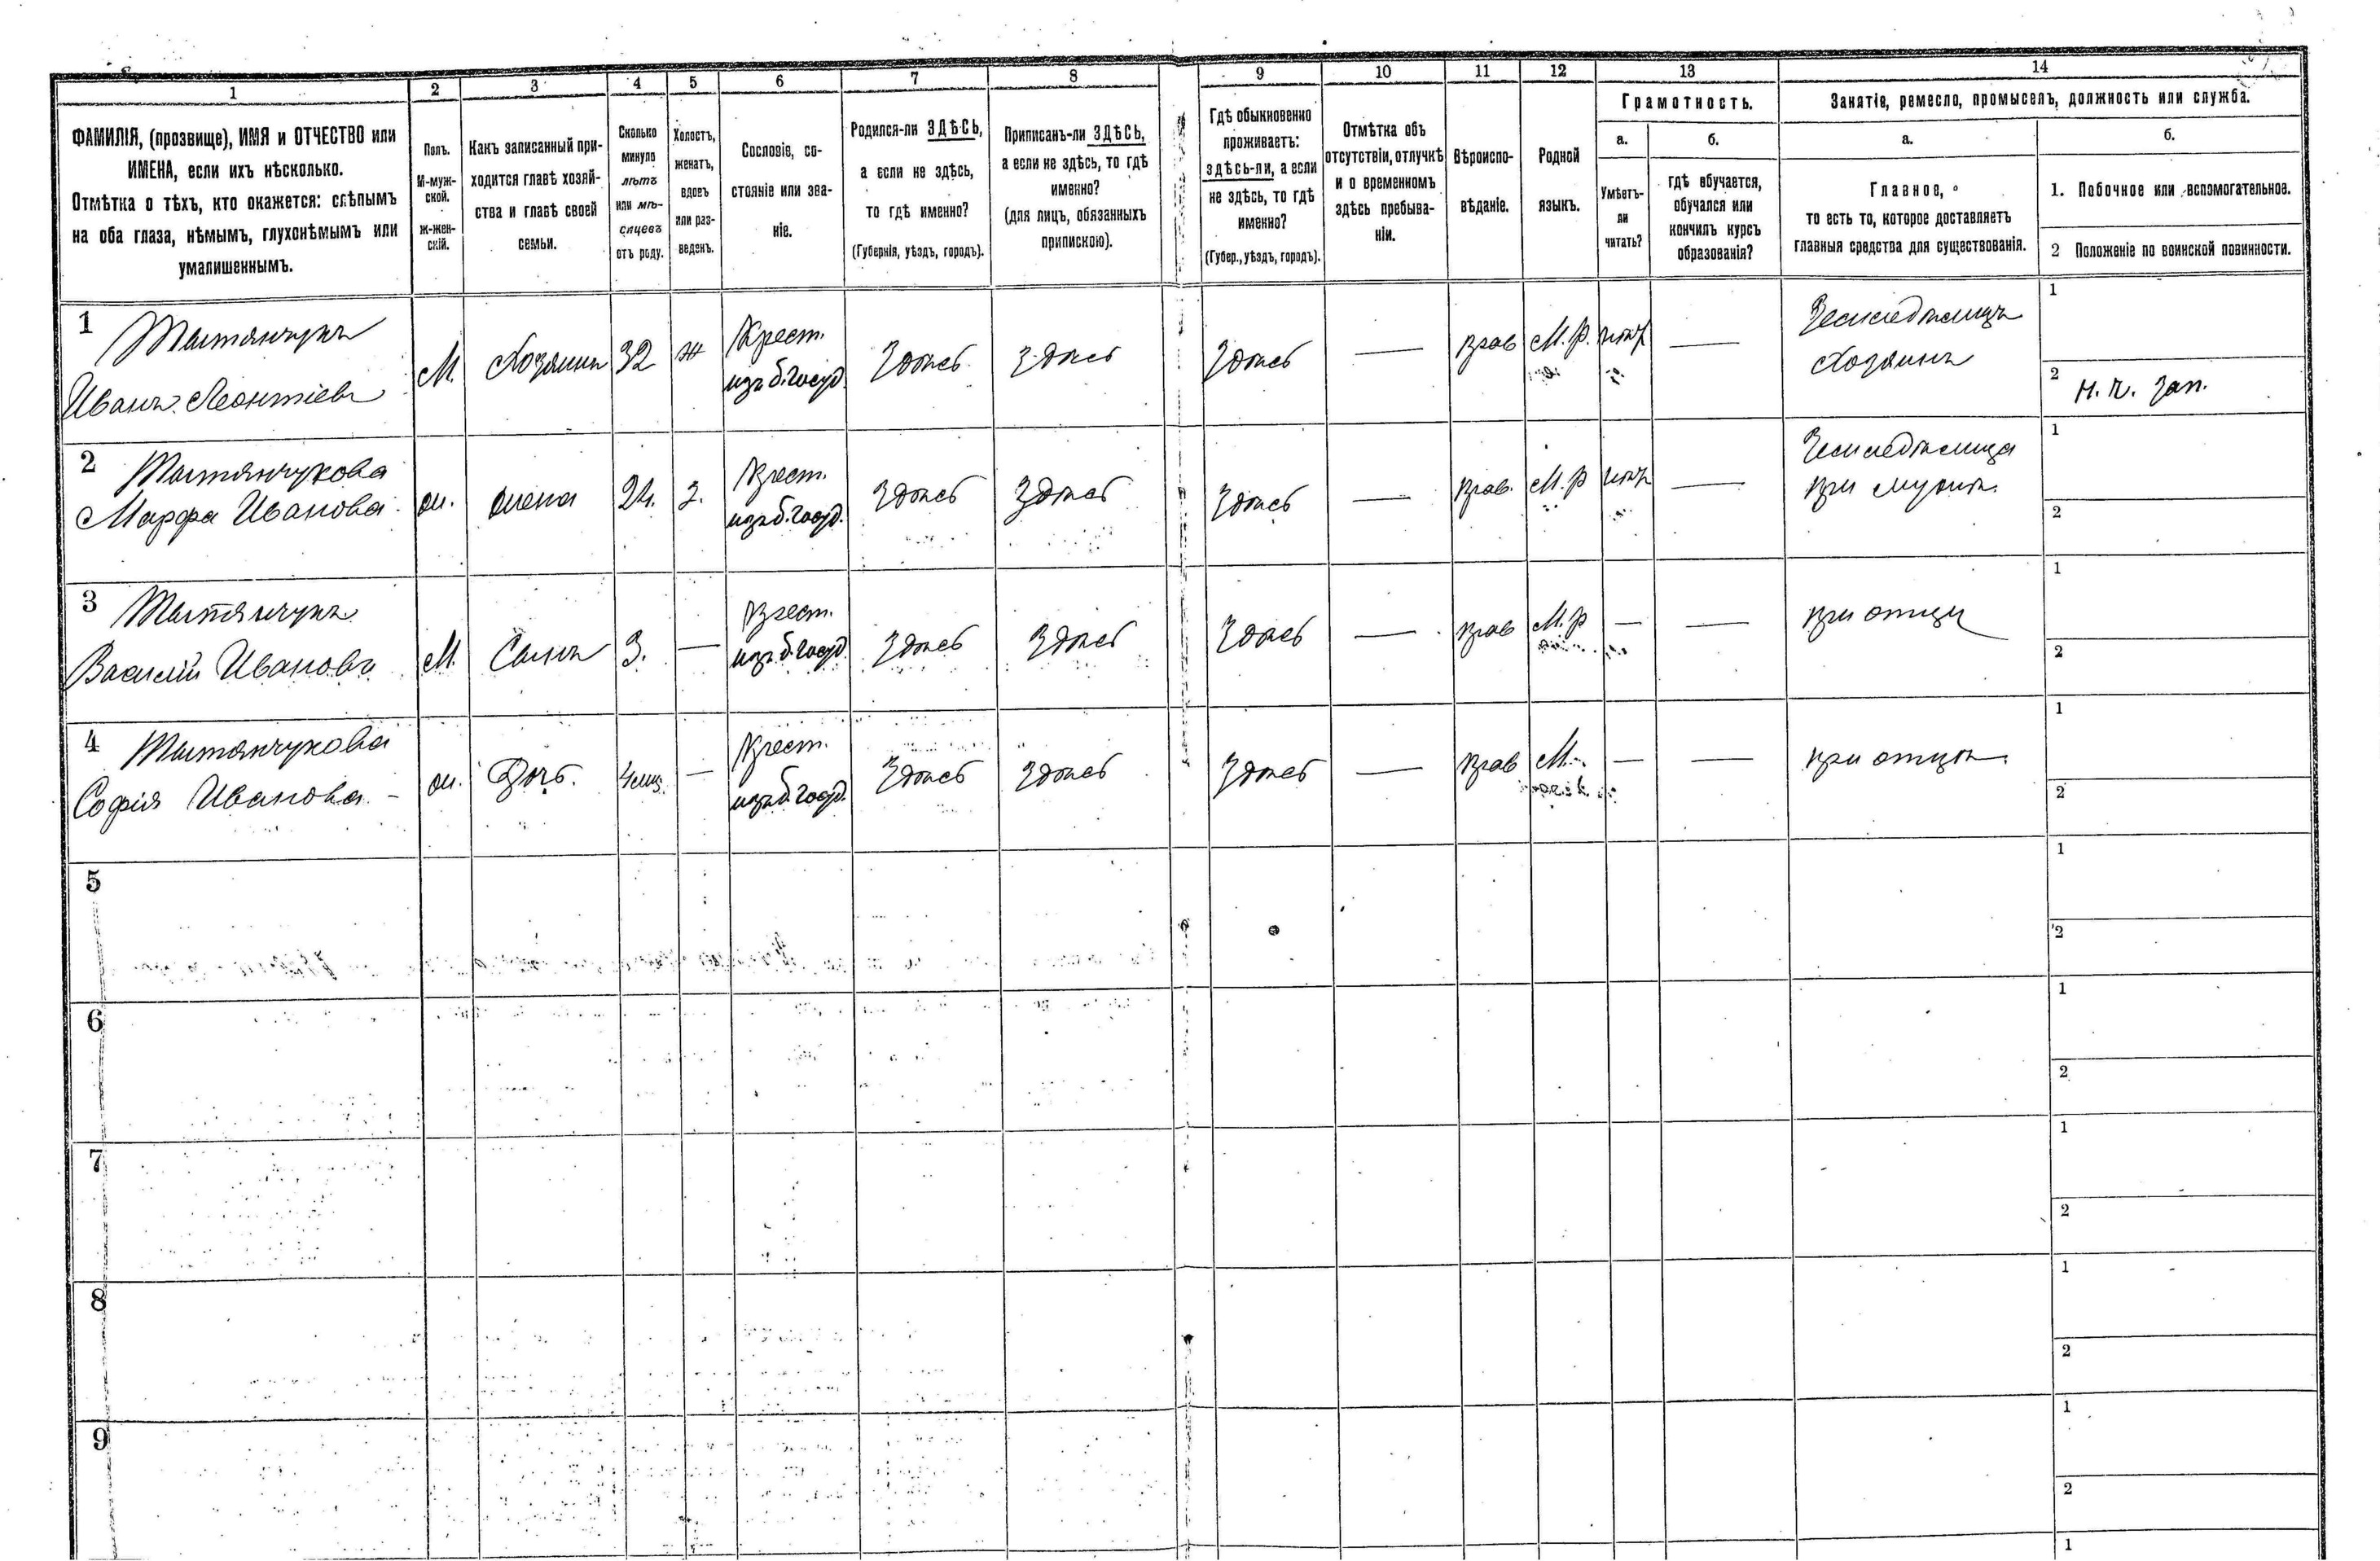 1
2
3
4
5
6
7
8
9
10
11
12
13
14
ФАМИЛІЯ, (прозвище), ИМЯ и ОТЧЕСТВО или
ИМЕНА, если ихъ нѣсколько.
Отмѣтка о тѣхъ, кто окажется: слѣпымъ
на оба глаза, нѣмымъ, глухонѣмымъ или
умалишеннымъ.
Полъ.
М-муж-
ской.
Ж-жен-
скій.
Какъ записанный при-
ходится главѣ хозяй-
ства и главѣ своей
семьи.
Сколько
минуло
лѣтъ
или мѣ-
сяцевъ
отъ роду.
Холостъ,
женатъ,
вдовъ
или раз-
веденъ.
Сословіе, со-
стояніе или зва-
ніе.
Родился-ли ЗДѢСЬ,
а если не здѣсь,
то гдѣ именно?
(Губернія, уѣздъ, городъ).
Приписанъ-ли ЗДѢСЬ,
а если не здѣсь, то гдѣ
именно?
(для лицъ, обязанныхъ
припискою).
Гдѣ обыкновенно
проживаетъ:
здѣсь-ли, а если
не здѣсь, то гдѣ
именно?
(Губер., уѣздъ, городъ).
Отмѣтка объ
отсутствіи, отлучкѣ
и о временномъ
здѣсь пребыва-
ніи.
Вѣроиспо-
вѣданіе.
Родной
языкъ.
Грамотность.
а.
Умѣетъ-
ли
читать?
б.
гдѣ обучается,
обучался или
кончилъ курсъ
образованія?
Занятіе, ремесло, промыселъ, должность или служба.
а.
Главное,
то есть то, которое доставляетъ
главныя средства для существованія.
б.
1. Побочное или вспомогательное.
2 Положеніе по воинской повинности.
1 Тытянчукъ
Иванъ Леонтіевъ
М.
Хозяинъ
32
ж
Крест.
изъ б. госуд.
Здѣсь
Здѣсь
Здѣсь
—
прав
М. р.
нѣт
—
Земледѣлецъ
Хозяинъ
1
2 н. ч. зап.
2 Тытянчукова
Марфа Иванова
ж.
жена
24.
з.
Крест.
изъ б. госуд.
Здѣсь
Здѣсь
Здѣсь
—
прав.
М. р
нѣт
—
Земледѣлица
при мужѣ.
1
2
3 Тытянчукъ
Василій Ивановъ
М.
Сынъ
3.
—
Крест.
изъ б. госуд.
Здѣсь
Здѣсь
Здѣсь
—
прав
М. р
—
—
при отцѣ
1
2
4 Тытянчукова
Софія Иванова
ж.
Дочь.
4 мѣс.
—
Крест.
изъ б. госуд.
Здѣсь
Здѣсь
Здѣсь
—
прав
М.
—
—
при отцѣ.
1
2
5
1
2
6
1
2
7
1
2
8
1
2
9
1
2
1